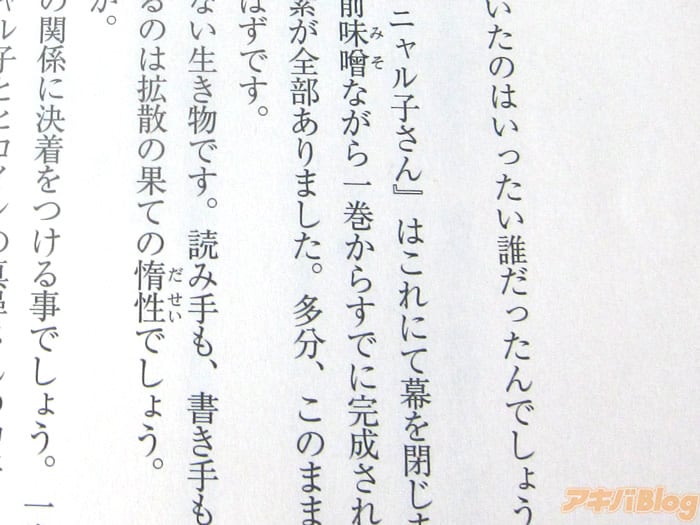 いたのはいったい誰だったんでしょう
ニャル子さん』はこれにて幕を閉じま
前味噌ながら一巻からすでに完成され
素が全部ありました。多分、このまま
はずです。
ない生き物です。読み手も、書き手も
るのは拡散の果ての惰性でしょう。
か。
の関係に決着をつける事でしょう。一
ャル子とヒロインの真尋さんのコ
みそ
だせい
アキバBlog